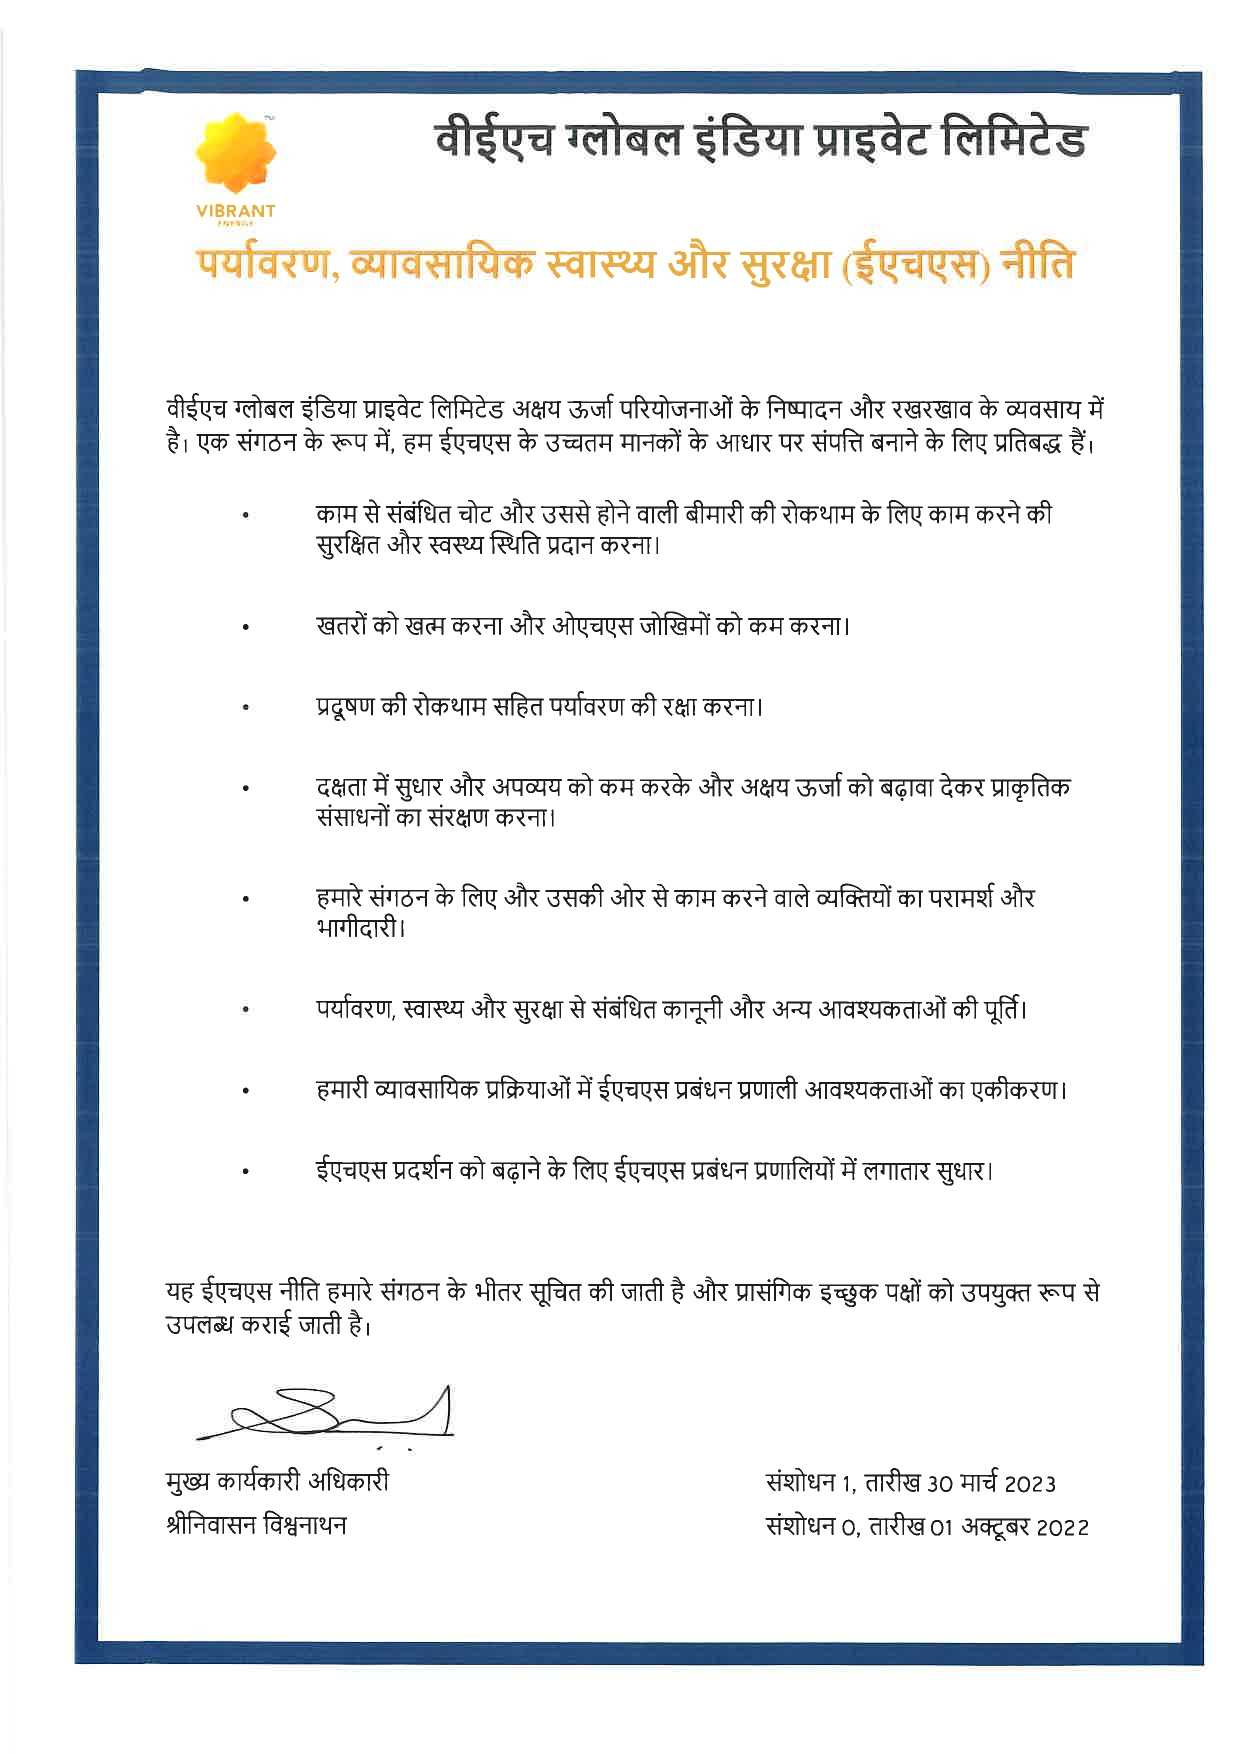 वीईएच ग्लोबल इंडिया प्राइवेट लिमिटेड
TM
VIBRANT
ENERGY
पर्यावरण, व्यावसायिक स्वास्थ्य और सुरक्षा (ईएचएस) नीति
वीईएच ग्लोबल इंडिया प्राइवेट लिमिटेड अक्षय ऊर्जा परियोजनाओं के निष्पादन और रखरखाव के व्यवसाय में
है। एक संगठन के रूप में, हम ईएचएस के उच्चतम मानकों के आधार पर संपत्ति बनाने के लिए प्रतिबद्ध हैं।
• काम से संबंधित चोट और उससे होने वाली बीमारी की रोकथाम के लिए काम करने की
सुरक्षित और स्वस्थ्य स्थिति प्रदान करना।
• खतरों को खत्म करना और ओएचएस जोखिमों को कम करना।
• प्रदूषण की रोकथाम सहित पर्यावरण की रक्षा करना।
• दक्षता में सुधार और अपव्यय को कम करके और अक्षय ऊर्जा को बढ़ावा देकर प्राकृतिक
संसाधनों का संरक्षण करना।
• हमारे संगठन के लिए और उसकी ओर से काम करने वाले व्यक्तियों का परामर्श और
भागीदारी।
• पर्यावरण, स्वास्थ्य और सुरक्षा से संबंधित कानूनी और अन्य आवश्यकताओं की पूर्ति।
• हमारी व्यावसायिक प्रक्रियाओं में ईएचएस प्रबंधन प्रणाली आवश्यकताओं का एकीकरण।
• ईएचएस प्रदर्शन को बढ़ाने के लिए ईएचएस प्रबंधन प्रणालियों में लगातार सुधार।
यह ईएचएस नीति हमारे संगठन के भीतर सूचित की जाती है और प्रासंगिक इच्छुक पक्षों को उपयुक्त रूप से
उपलब्ध कराई जाती है।
मुख्य कार्यकारी अधिकारी
श्रीनिवासन विश्वनाथन
संशोधन 1, तारीख 30 मार्च 2023
संशोधन 0, तारीख 01 अक्टूबर 2022